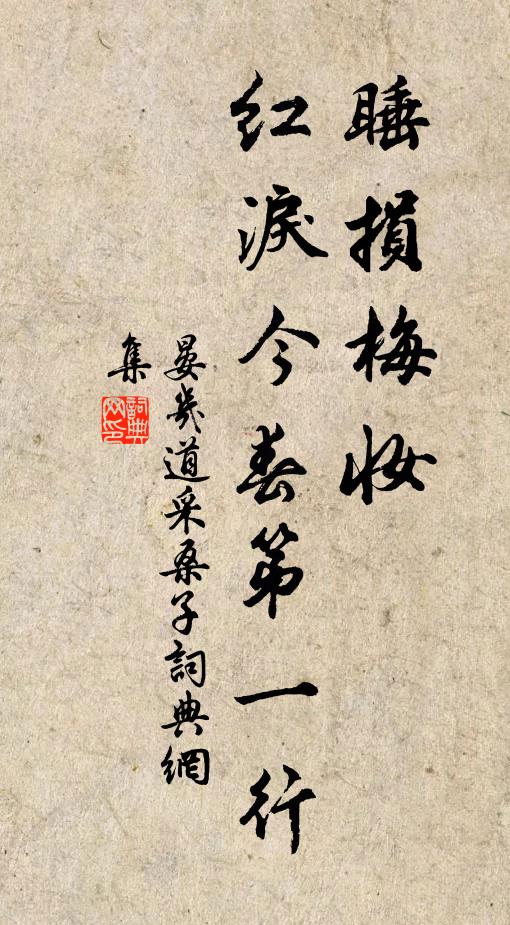 睡損梅妝
紅淚今春第一行
晏幾道采桑子詞典網
集
詞典
网印